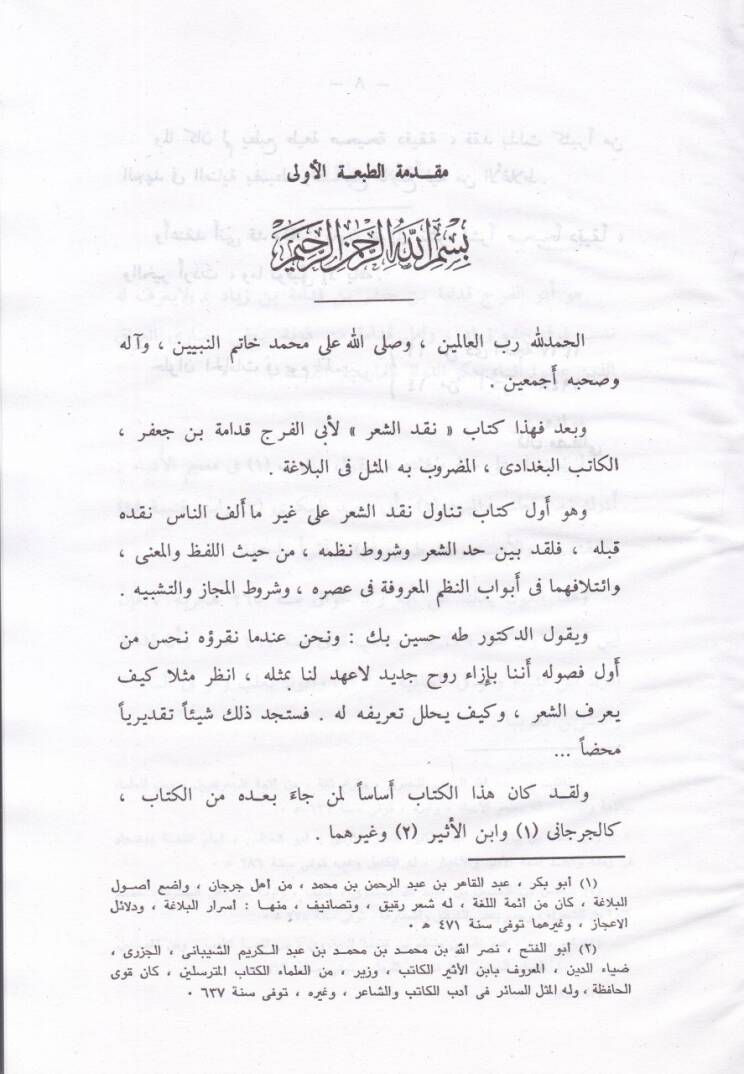 مقدمة الطبعة الأولى
بسم الله الرحمن الرحيم
الحمدلله رب العالمين ، وصلى الله على محمد خاتم النبيين ، وآله
وصحبه أجمعين .
وبعد فهذا كتاب « نقد الشعر » لأبى الفرج قدامة بن جعفر ،
الكاتب البغدادى ، المضروب به المثل فى البلاغة .
وهو أول كتاب تناول نقد الشعر على غير ما ألف الناس نقده
قبله ، فلقد بين حد الشعر وشروط نظمه ، من حيث اللفظ والمعنى ،
وائتلافهما فى أبواب النظم المعروفة فى عصره ، وشروط المجاز والتشبيه .
ويقول الدكتور طه حسين بك : ونحن عندما نقرؤه نحس من
أول فصوله أننا بإزاء روح جديد لاعهد لنا بمثله ، انظر مثلا كيف
يعرف الشعر ، وكيف يحلل تعريفه له . فستجد ذلك شيئاً تقديرياً
محضاً ...
ولقد كان هذا الكتاب أساساً لمن جاءَ بعده من الكتاب ،
كالجرجانى (١) وابن الأثير (٢) وغيرهما .
(١) أبو بكر ، عبد القاهر بن عبد الرحمن بن محمد ، من أهل جرجان ، واضع أصول
البلاغة ، كان من أئمة اللغة ، له شعر رقيق ، وتصانيف ، منها : أسرار البلاغة ، ودلائل
الاعجاز ، وغيرهما توفى سنة ٤٧١ هـ ٠
(٢) أبو الفتح ، نصر الله بن محمد بن محمد بن عبد الكريم الشيبانى ، الجزرى ،
ضياء الدين ، المعروف بابن الأثير الكاتب ، وزير ، من العلماء الكتاب المترسلين ، كان قوى
الحافظة ، وله المثل السائر فى أدب الكاتب والشاعر ، وغيره ، توفى سنة ٦٣٧ ٠